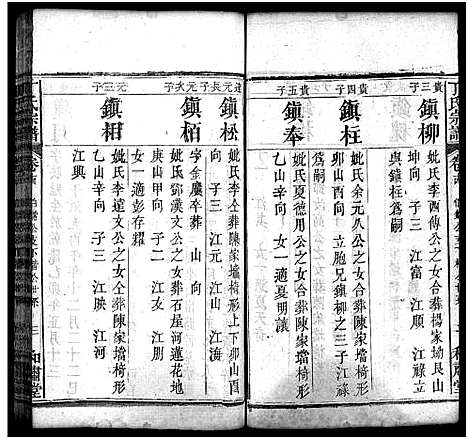 丁氏宗譜
貴三子
鎮柳
妣氏李西傳公之女合葬楊家坳艮山
向 子三 江富 江順 江祿立
與鎮柱為嗣
貴四子
鎮柱
妣氏余元八公之女合葬陳家壋椅形
卯山酉向 立胞兄鎮柳之三子江祿立
為嗣
貴五子
鎮奉
妣氏夏德用公之女合葬陳家壋椅形
艮山坤向 女一適夏明讓
達元長子
鎮松
妣氏李仝葬陳家壋椅形上下卯山酉
向 子三 江元 江山 江海
字金慶卒葬 山 向
元次子
鎮栢
妣氏鄧漢文公之女仝葬石屋河蓮花地
庚山甲向 子二 江友 江朋
女一適彭存耀
元三子
鎮相
妣氏李達文公之女仝葬陳家壋椅形
乙山辛向 子三 江映 江河
江興
氏宗譜
卷
三
和肅堂